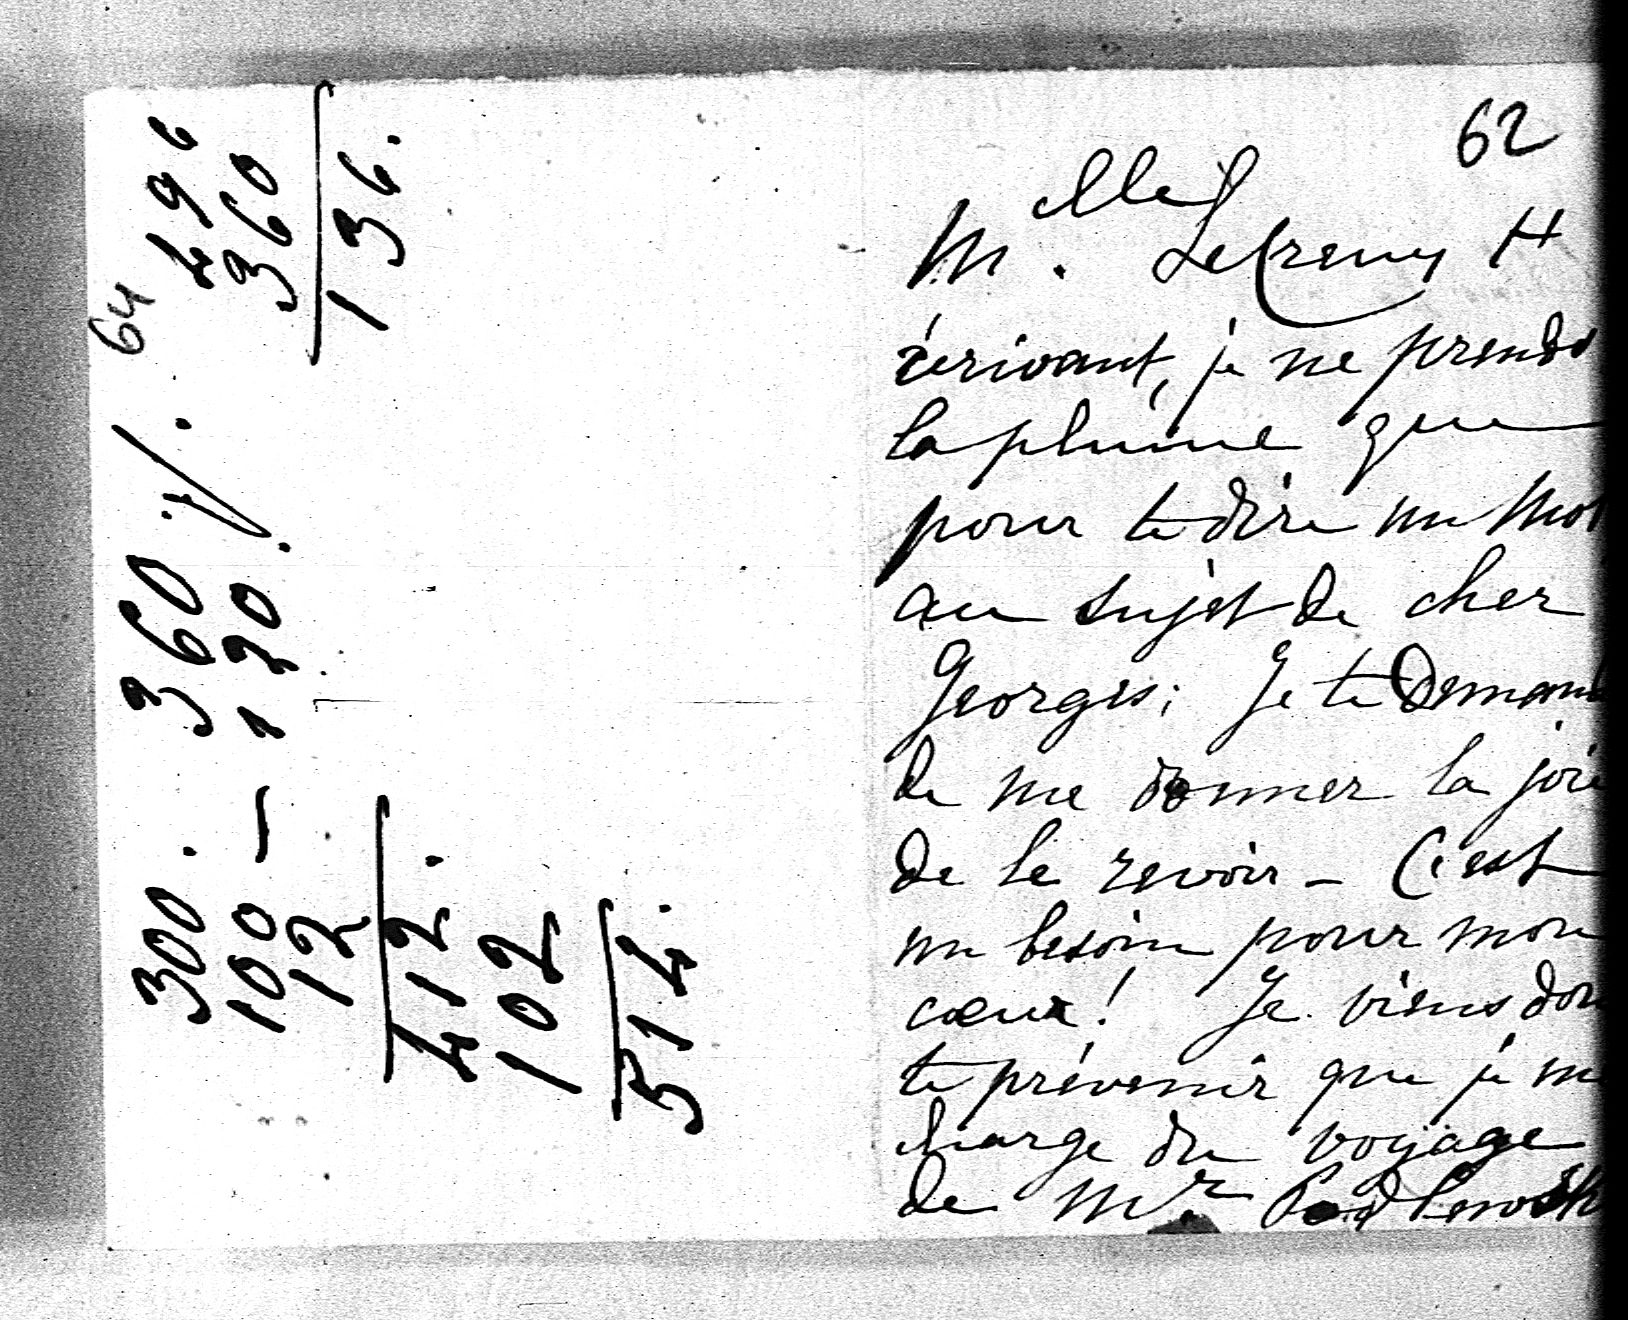 62
Melle Lefreny H
écrivant, je ne prends
la plume que
pour te dire un mot
au sujet de cher
Georges; Je te demand
de me donner la joie
de le revoir - C'est
un besoin pour mon
cœur! Je viens don
te prévenir que je me
charge du voyage
de Mr
64
496
360
136.
360
120.
300.
100 -
12
412.
102
514.